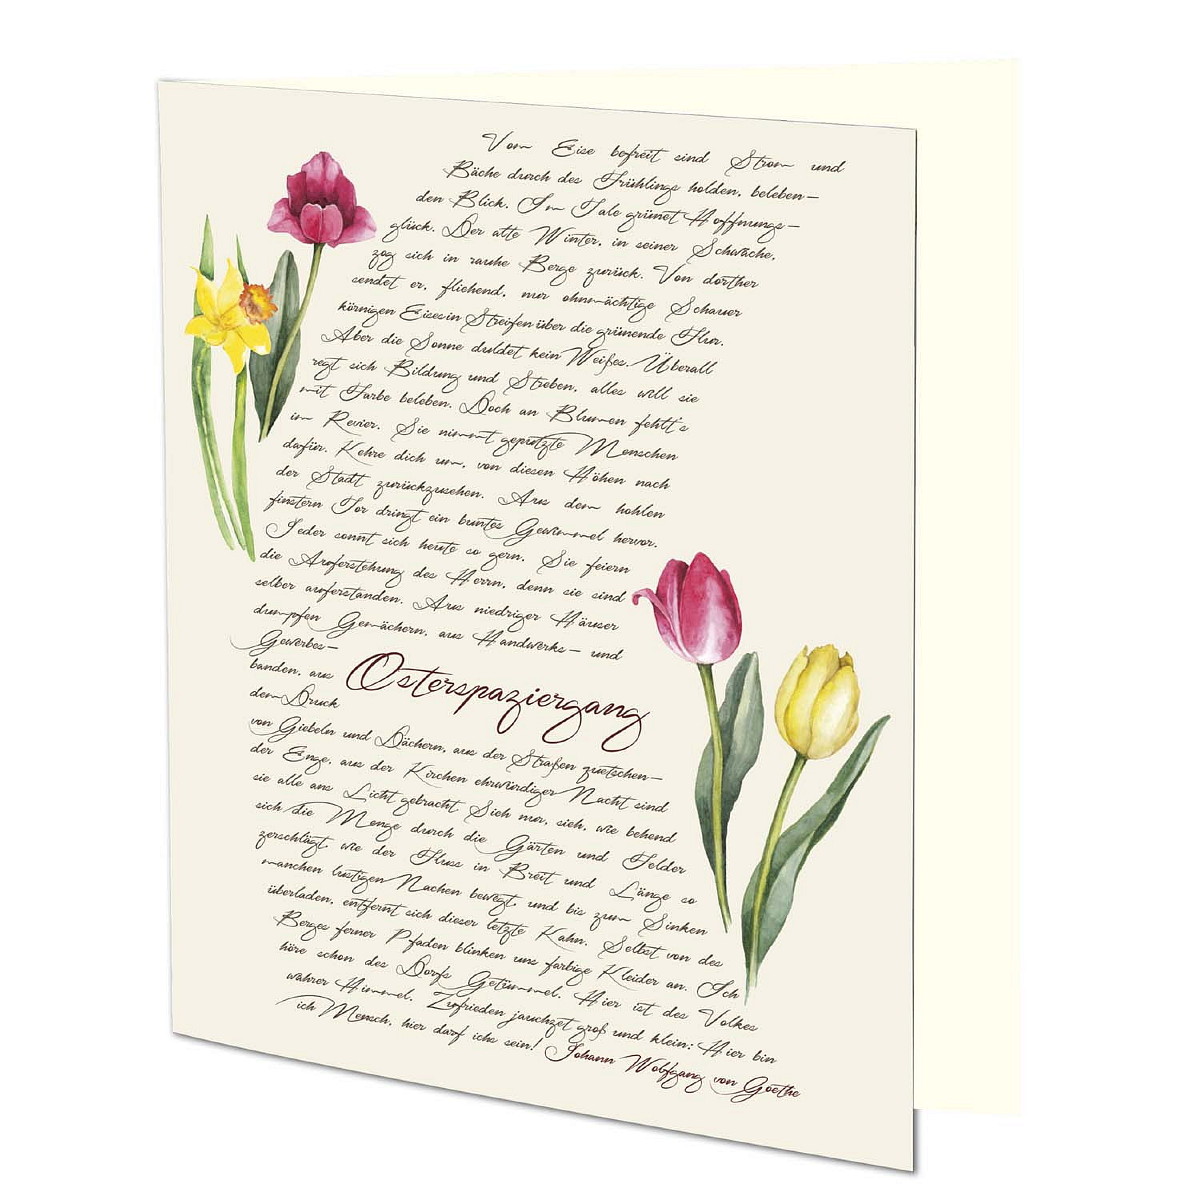 Vom Eise befreit sind Strom und
Bäche durch des Frühlings holden, beleben-
den Blick. Im Tale grünet Hoffnungs-
glück. Der alte Winter, in seiner Schwäche,
zog sich in rauhe Berge zurück. Von dorther
sendet er, fliehend, nur ohnmächtige Schauer
körnigen Eises in Streifen über die grünende Flur.
Aber die Sonne duldet kein Weißes. Überall
regt sich Bildung und Streben, alles will sie
mit Farbe beleben. Doch an Blumen fehlt's
im Revier. Sie nimmt geputzte Menschen
dafür. Kehre dich um, von diesen Höhen nach
der Stadt zurückzusehen. Aus dem hohlen
finstern Tor dringt ein buntes Gewimmel hervor.
Jeder sonnt sich heute so gern. Sie feiern
die Auferstehung des Herrn, denn sie sind
selber auferstanden. Aus niedriger Häuser
dumpfen Gemächern, aus Handwerks- und
Gewerbes-
banden, aus
dem Druck
Osterspaziergang
von Giebeln und Dächern, aus der Straßen quetschen-
der Enge, aus der Kirchen ehrwürdiger Nacht sind
sie alle ans Licht gebracht. Sieh nur, sieh, wie behend
sich die Menge durch die Gärten und Felder
zerschlägt, wie der Fluss in Breit und Länge so
manchen lustigen Nachen bewegt, und bis zum Sinken
überladen, entfernt sich dieser letzte Kahn. Selbst von des
Berges ferner Pfaden blinken uns farbige Kleider an. Ich
höre schon des Dorfs Getümmel. Hier ist des Volkes
wahrer Himmel. Zufrieden jauchzet groß und klein: Hier bin
ich Mensch, hier darf ichs sein! Johann Wolfgang von Goethe